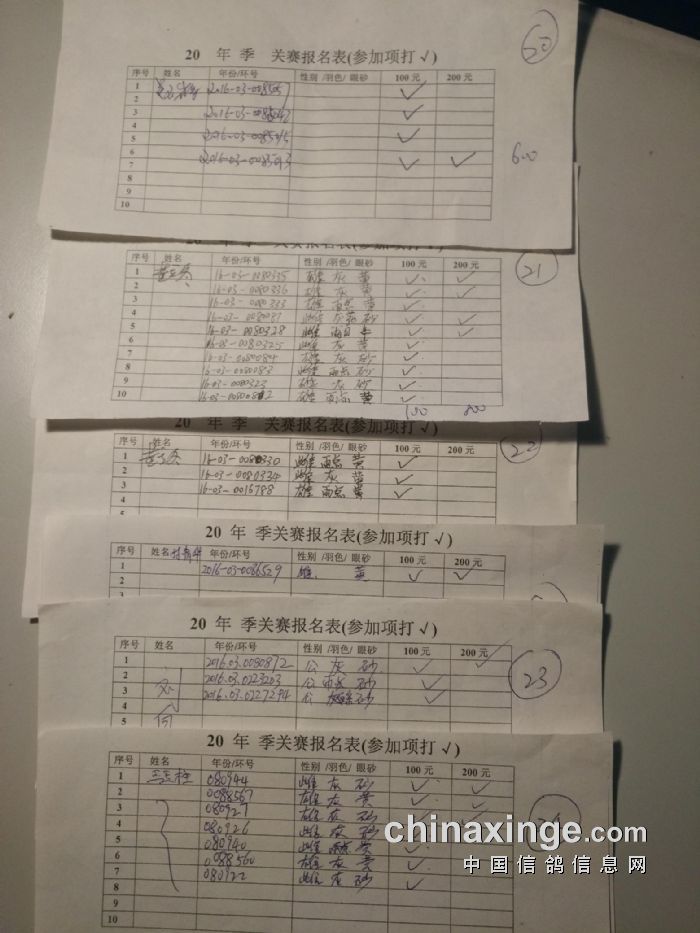 20 年 季 关赛报名表(参加项打 √)
20
序号 姓名 年份/环号 性别 /羽色/ 眼砂 100 元 200 元
1 √
2
3 √
4
5 √
6
7 √ √
8
9
10
600
20 年 季 关赛报名表(参加项打 √)
21
序号 姓名 年份/环号 性别 /羽色/ 眼砂 100 元 200 元
1 16-03-0080335 雌 灰 黄 √ √
2 16-03-0080336 雄 灰 黄 √ √
3 16-03-0080333 雄 雨点 黄 √
4 砂 √ √
5 16-03-0080328 √ √
6 16-03-0080325 雌 灰 黄 √
7 16-03-0080084 雄 灰 砂 √
8 16-03-0080083 雌 雨点 砂 √
9 16-03-0080323 雄 灰 砂 √
10 雄 雨点 黄 √
800
20 年 季 关赛报名表(参加项打 √)
22
序号 姓名 年份/环号 性别 /羽色/ 眼砂 100 元 200 元
1 16-03-0080330 雌 雨点 黄 √
2 16-03-0080324 雌 灰 黄 √
3 16-03-0015788 雄 雨点 黄 √
4
20 年 季关赛报名表(参加项打 √)
序号 姓名 年份/环号 性别 /羽色/ 眼砂 100 元 200 元
1 2016-03-0086529 黄 √ √
2
20 年 季关赛报名表(参加项打 √)
23
序号 姓名 年份/环号 性别 /羽色/ 眼砂 100 元 200 元
1 2016.03.0080872 公 灰 砂 √ √
2 2016.03.0223203 公 雨点 砂 √
3 2016.03.0227294 公 砂 √
4
5
20 年 季关赛报名表(参加项打 √)
序号 姓名 年份/环号 性别 /羽色/ 眼砂 100 元 200 元
1 080944 雌 灰 砂 √ √
2 0088567 雄 灰 黄 √ √
3 080927 雄 灰 砂 √
4 080926 雌 灰 砂
5 080940 雌 雨点 黄
6 0088560 雄 灰 黄 √
7 080922 雌 灰 砂 √
8
9
10
chinaxinge.com
中国信鸽信息网